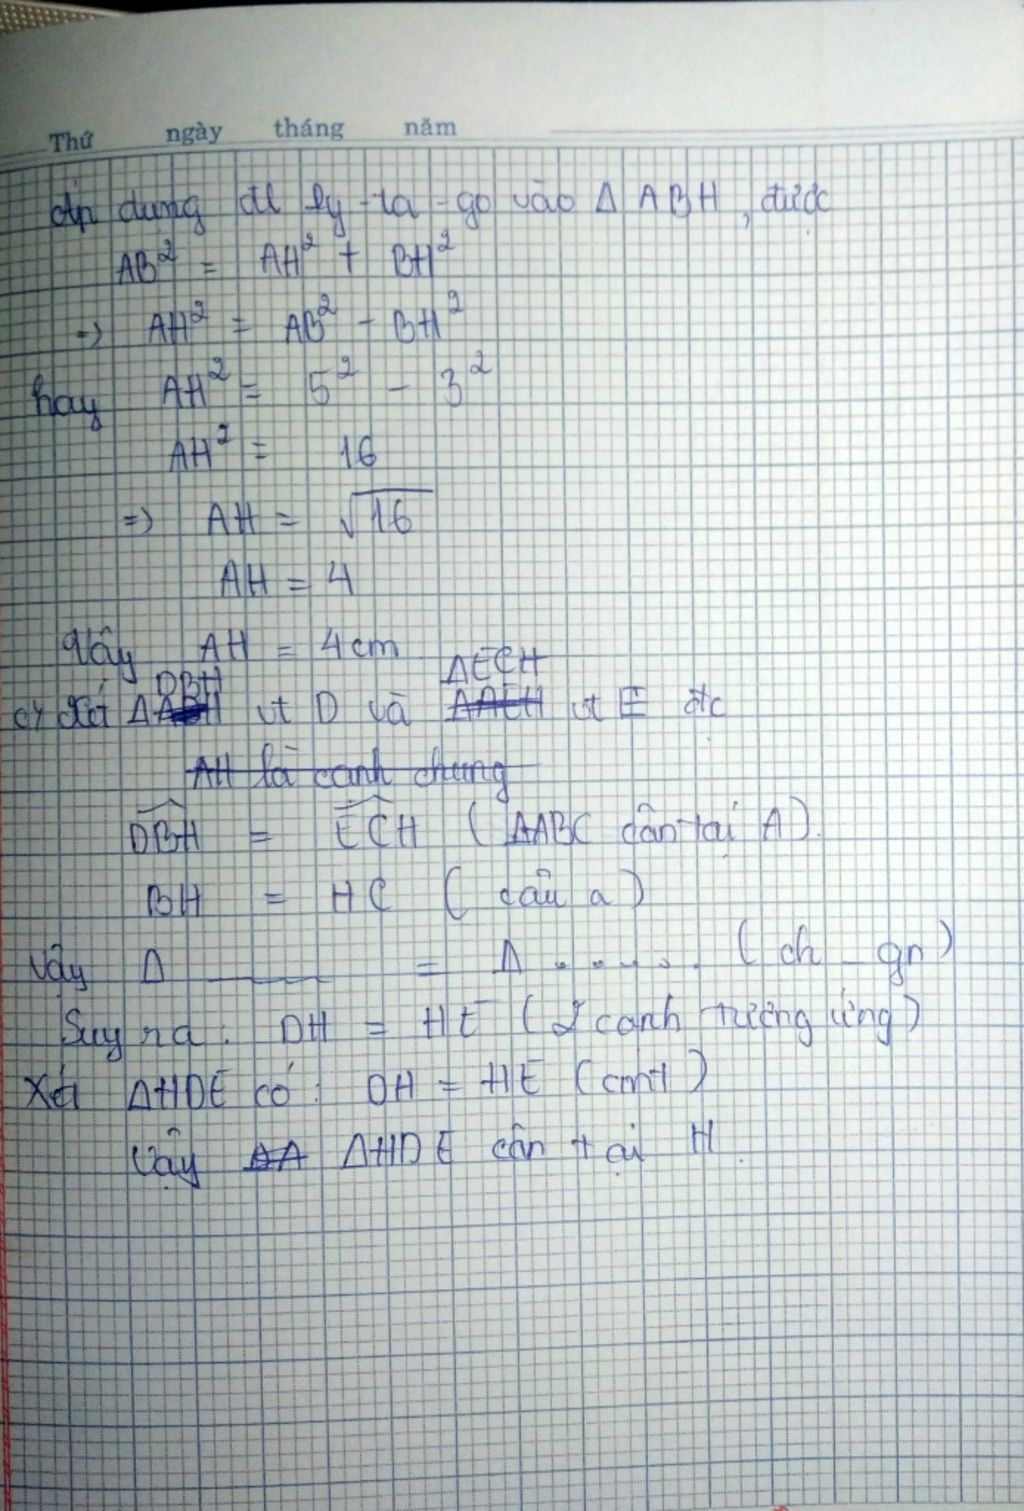 Thứ ngày tháng năm
Áp dụng đl Py-ta-go vào Δ ABH, được
AB² = AH² + BH²
=> AH² = AB² - BH²
hay AH² = 5² - 3²
AH² = 16
=> AH = √16
AH = 4
Vậy AH = 4cm
c) Xét ΔDBH vt D và ΔECH vt E có
AH là cạnh chung
DBH = ECH (ΔABC cân tại A).
BH = HC (câu a)
Vậy Δ ______ = Δ ...... (ch - gn)
Suy ra: DH = HE (2 cạnh tương ứng)
Xét ΔHDE có: DH = HE (cmt)
Vậy ΔHDE cân tại H.